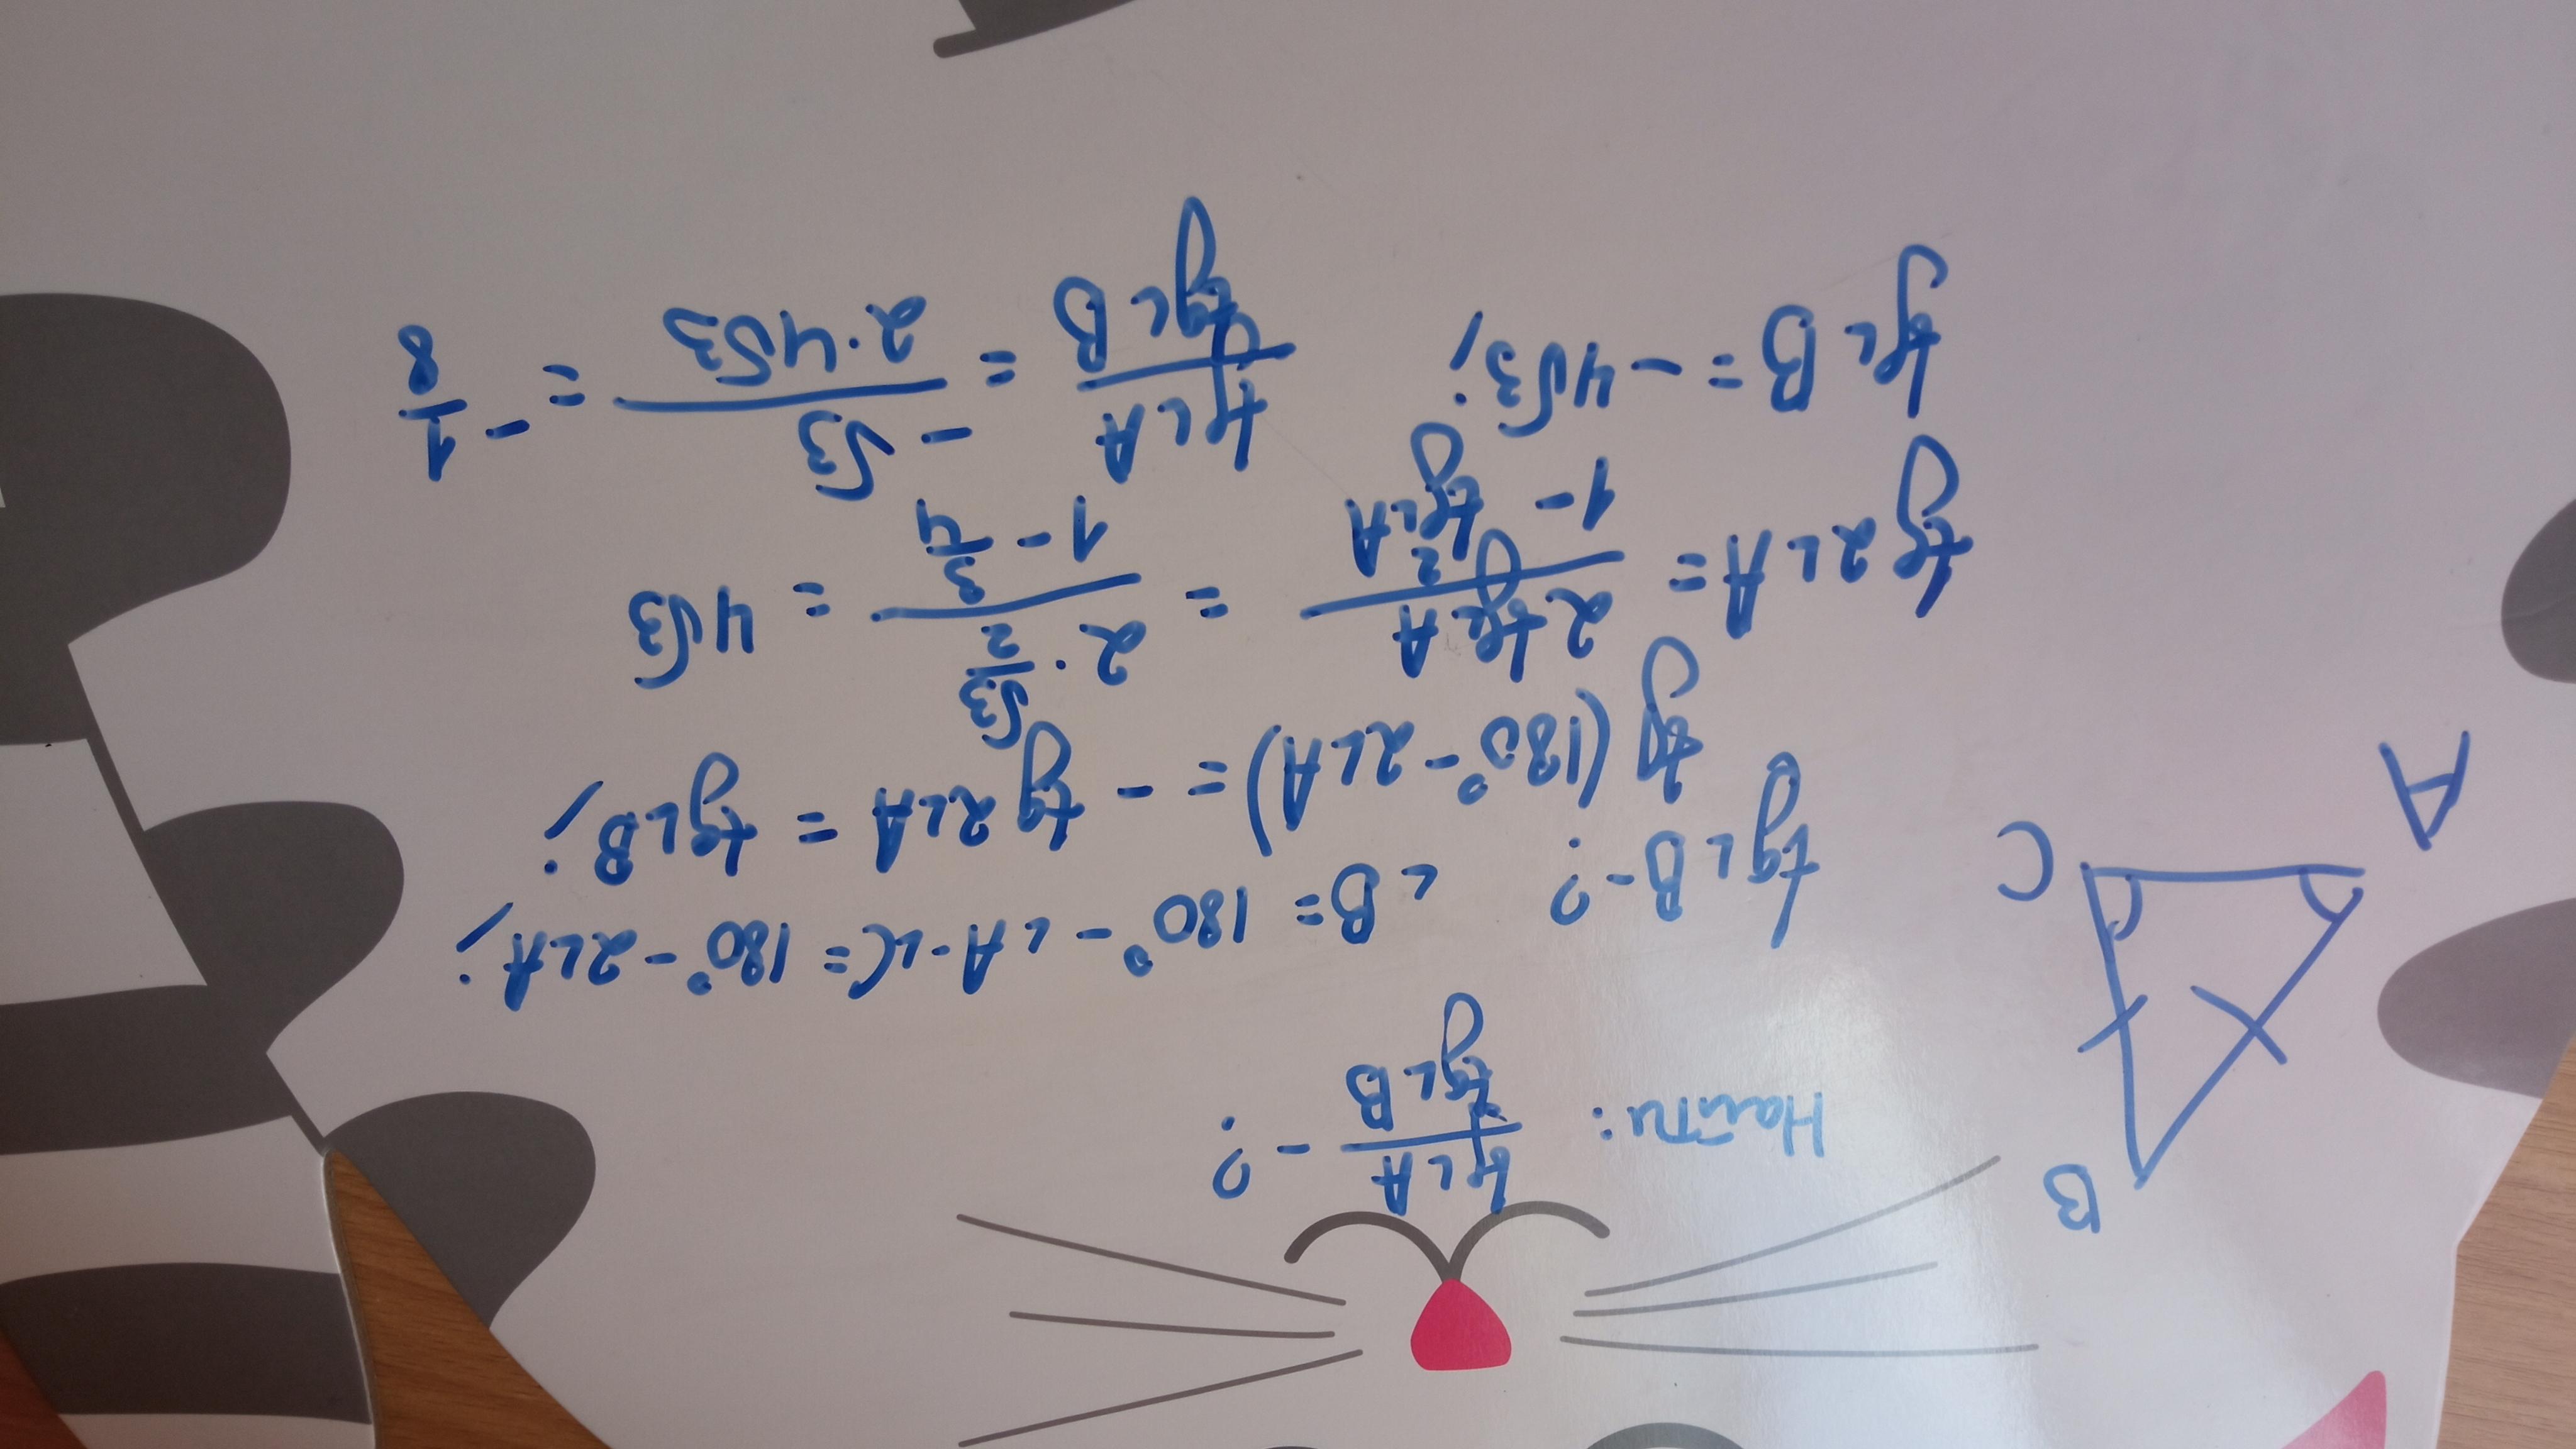 B
A
C
Найти: tg∠A/tg∠B - ?
∠B = 180° - ∠A - ∠C = 180° - 2∠A;
tg∠B - ?
tg(180° - 2∠A) = - tg2∠A = tg∠B;
tg2∠A = 2tg∠A/(1 - tg²∠A) = (2·√3/2)/(1 - 3/4) = 4√3
tg∠B = -4√3; tg∠A/tg∠B = -√3/(2·4√3) = -1/8